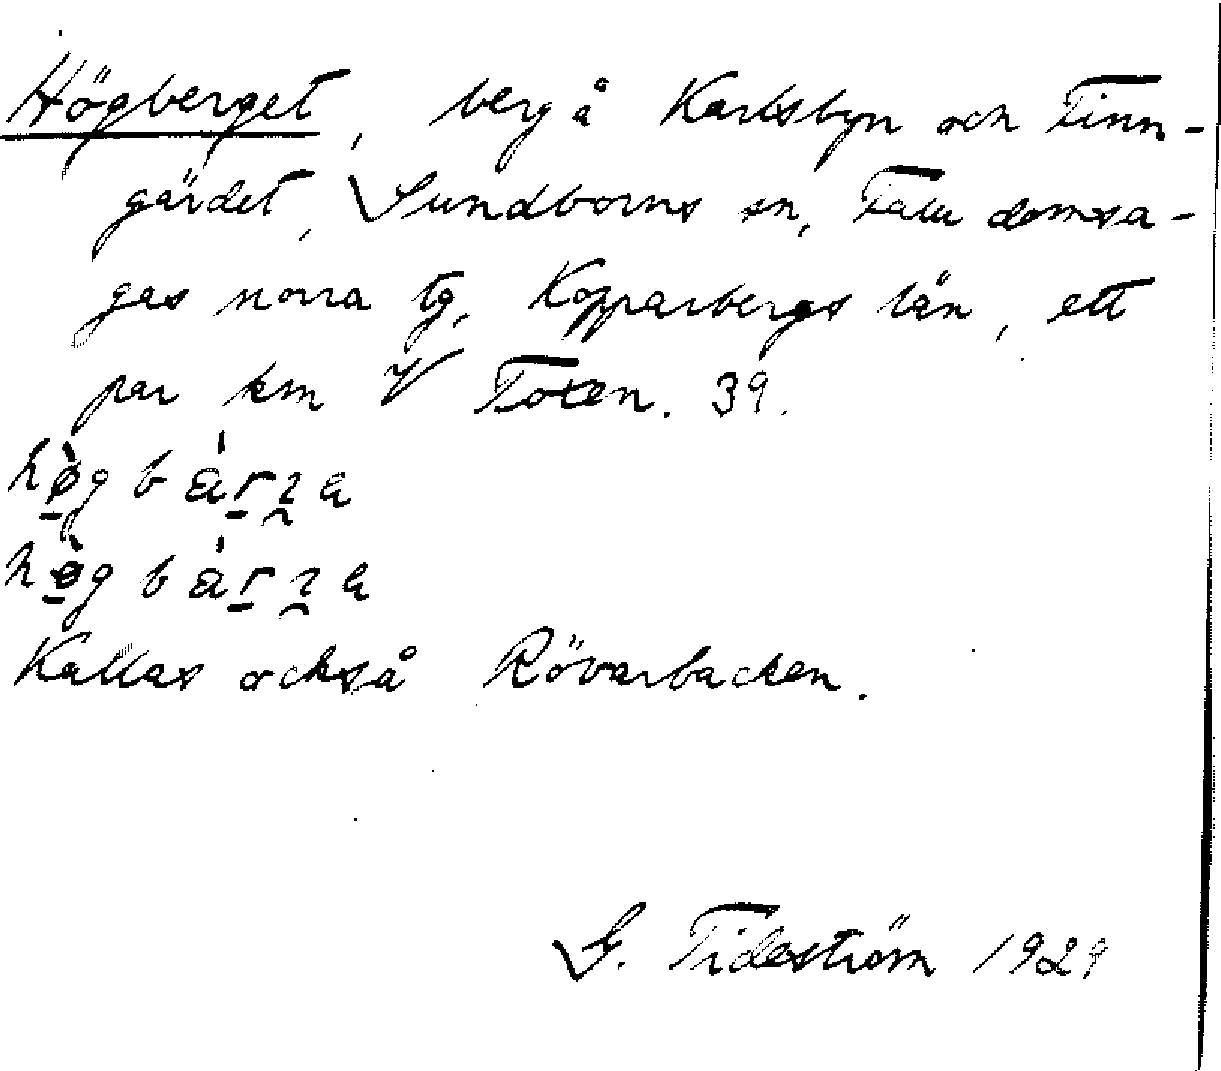 Högberget, berg å Karlsbyn och Finn-
gärdet, Sundborns sn, Falu domsa-
gas norra tg, Kopparbergs län, ett
par km V Toten. 39.
hø̀g bárza
hø̀g bárza
Kallas också Rövarbacken.
G. Tideström 1929